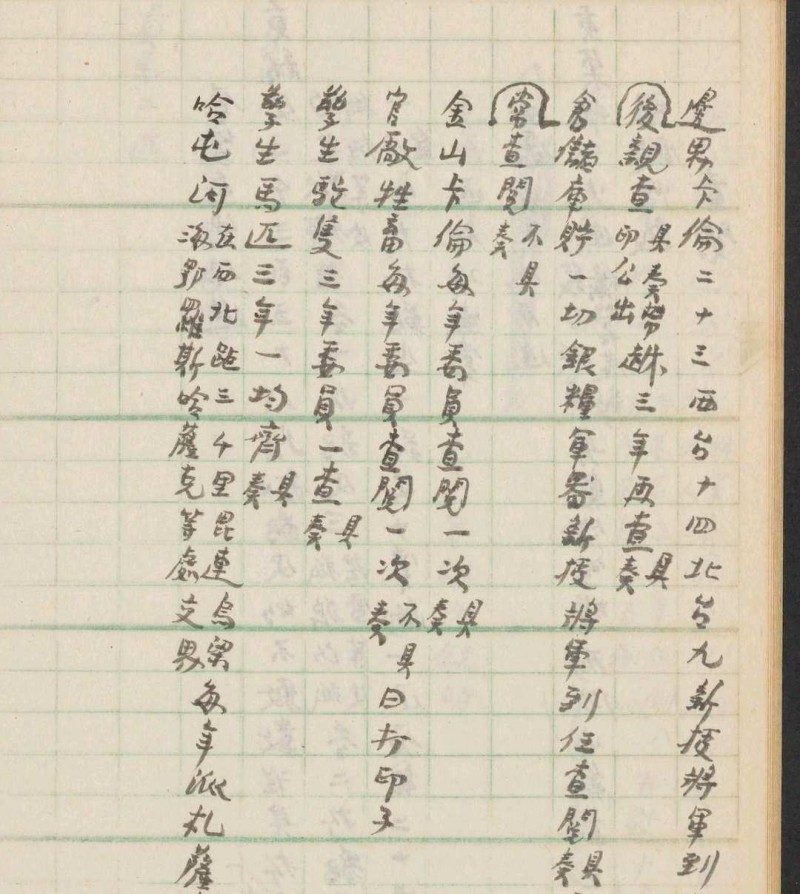 邊界卡倫二十三西台十四北台九新授將軍到
後親查具奏帶印公出越三年再查具奏
倉儲庫貯一切銀糧軍器新授將軍到任查閱具奏
常查閱不具奏
金山卡倫每年委員查閱一次具奏
官廠牲畜每年委員查閱一次不具奏曰打印子
孳生駝隻三年委員一查具奏
孳生馬匹三年一均齊具奏
哈屯河在西北距三千里毘連烏梁海鄂羅斯哈薩克等處交界每年派札薩